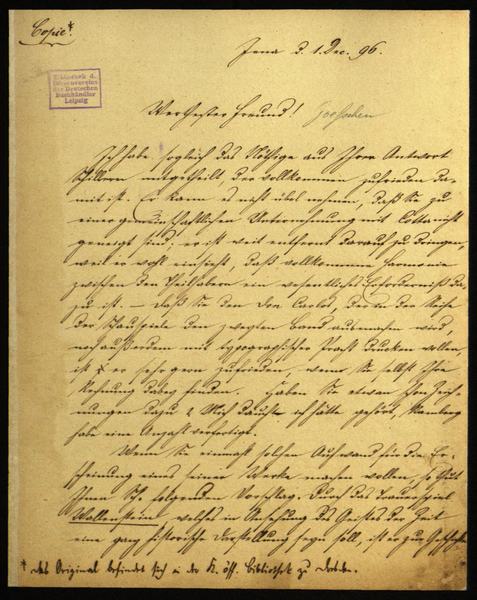 Copie*
Jena d. 1. Dec. 96.
Bibliothek d.
Börsenvereins
der Deutschen
Buchhändler
Leipzig
Werthester Freund! Goeschen
Ich habe sogleich das Nöthige aus Ihrer Antwort
Schillern mitgetheilt, der vollkommen zufrieden da-
mit ist. Er kann es nicht übel nehmen, daß Sie zu
einer gemeinschaftlichen Unternehmung mit Cotta nicht
geneigt sind; er ist weit entfernt darauf zu dringen,
weil er wohl einsieht, daß vollkommene Harmonie
zwischen den Theilhabern ein wesentliches Erforderniß da-
zu ist. – Daß Sie den Don Carlos, der in der Reihe
der Schauspiele den zweyten Band ausmachen wird,
noch außerdem mit typographischer Pracht drucken wollen,
ist er sehr gern zufrieden, wenn Sie selbst Ihre
Rechnung dabey finden. Haben Sie etwan schon Zeich-
nungen dazu? Mich däucht ich hätte gehört, Ramberg
habe eine Anzahl verfertigt.
Wenn Sie einmahl solchen Aufwand für die Er-
scheinung eines seiner Werke machen wollen, so thut
Ihnen Sch. folgenden Vorschlag. Durch das Trauerspiel
Wallenstein, welches in Ansehung des Geistes der Zeit
eine ganz historische Darstellung seyn soll, ist er zur
* Das Original befindet sich in der K. öff. Bibliothek zu Dresden.